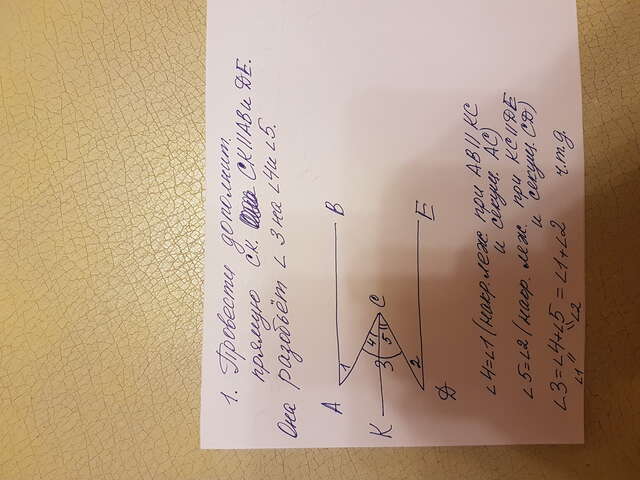 1. Провести дополнит.
прямую СК. СК || АВ и DE.
Она разобьёт ∠3 на ∠4 и ∠5.
A
B
1
K
3
4
5
C
2
D
E
∠4=∠1 (накр. леж. при AB || KC
и секущ. AC)
∠5=∠2 (накр. леж. при KC || DE
и секущ. CD)
∠3=∠4+∠5 = ∠1+∠2 ч.т.д.
∠1 ∠2